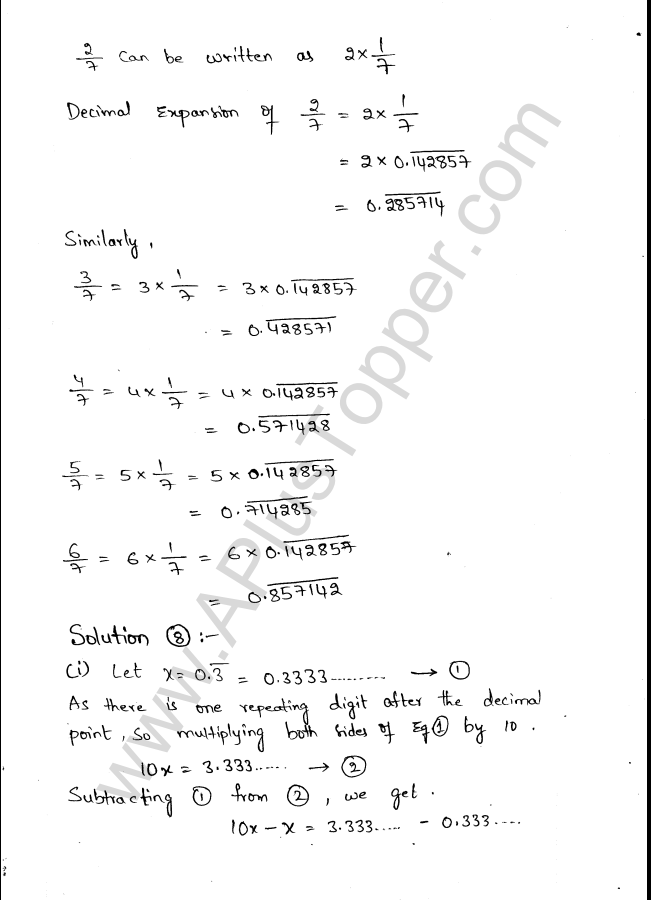 2/7 can be written as 2 × 1/7
Decimal Expansion of 2/7 = 2 × 1/7
= 2 × 0.1̅4̅2̅8̅5̅7̅
= 0.2̅8̅5̅7̅1̅4̅
Similarly,
3/7 = 3 × 1/7 = 3 × 0.1̅4̅2̅8̅5̅7̅
= 0.4̅2̅8̅5̅7̅1̅
4/7 = 4 × 1/7 = 4 × 0.1̅4̅2̅8̅5̅7̅
= 0.5̅7̅1̅4̅2̅8̅
5/7 = 5 × 1/7 = 5 × 0.1̅4̅2̅8̅5̅7̅
= 0.7̅1̅4̅2̅8̅5̅
6/7 = 6 × 1/7 = 6 × 0.1̅4̅2̅8̅5̅7̅
= 0.8̅5̅7̅1̅4̅2̅
Solution ⑧ :-
(i) Let x = 0.3̅ = 0.3333......... → ①
As there is one repeating digit after the decimal
point, so multiplying both sides of Eq ① by 10.
10x = 3.333...... → ②
Subtracting ① from ②, we get.
10x - x = 3.333..... - 0.333....
www.APlusTopper.com